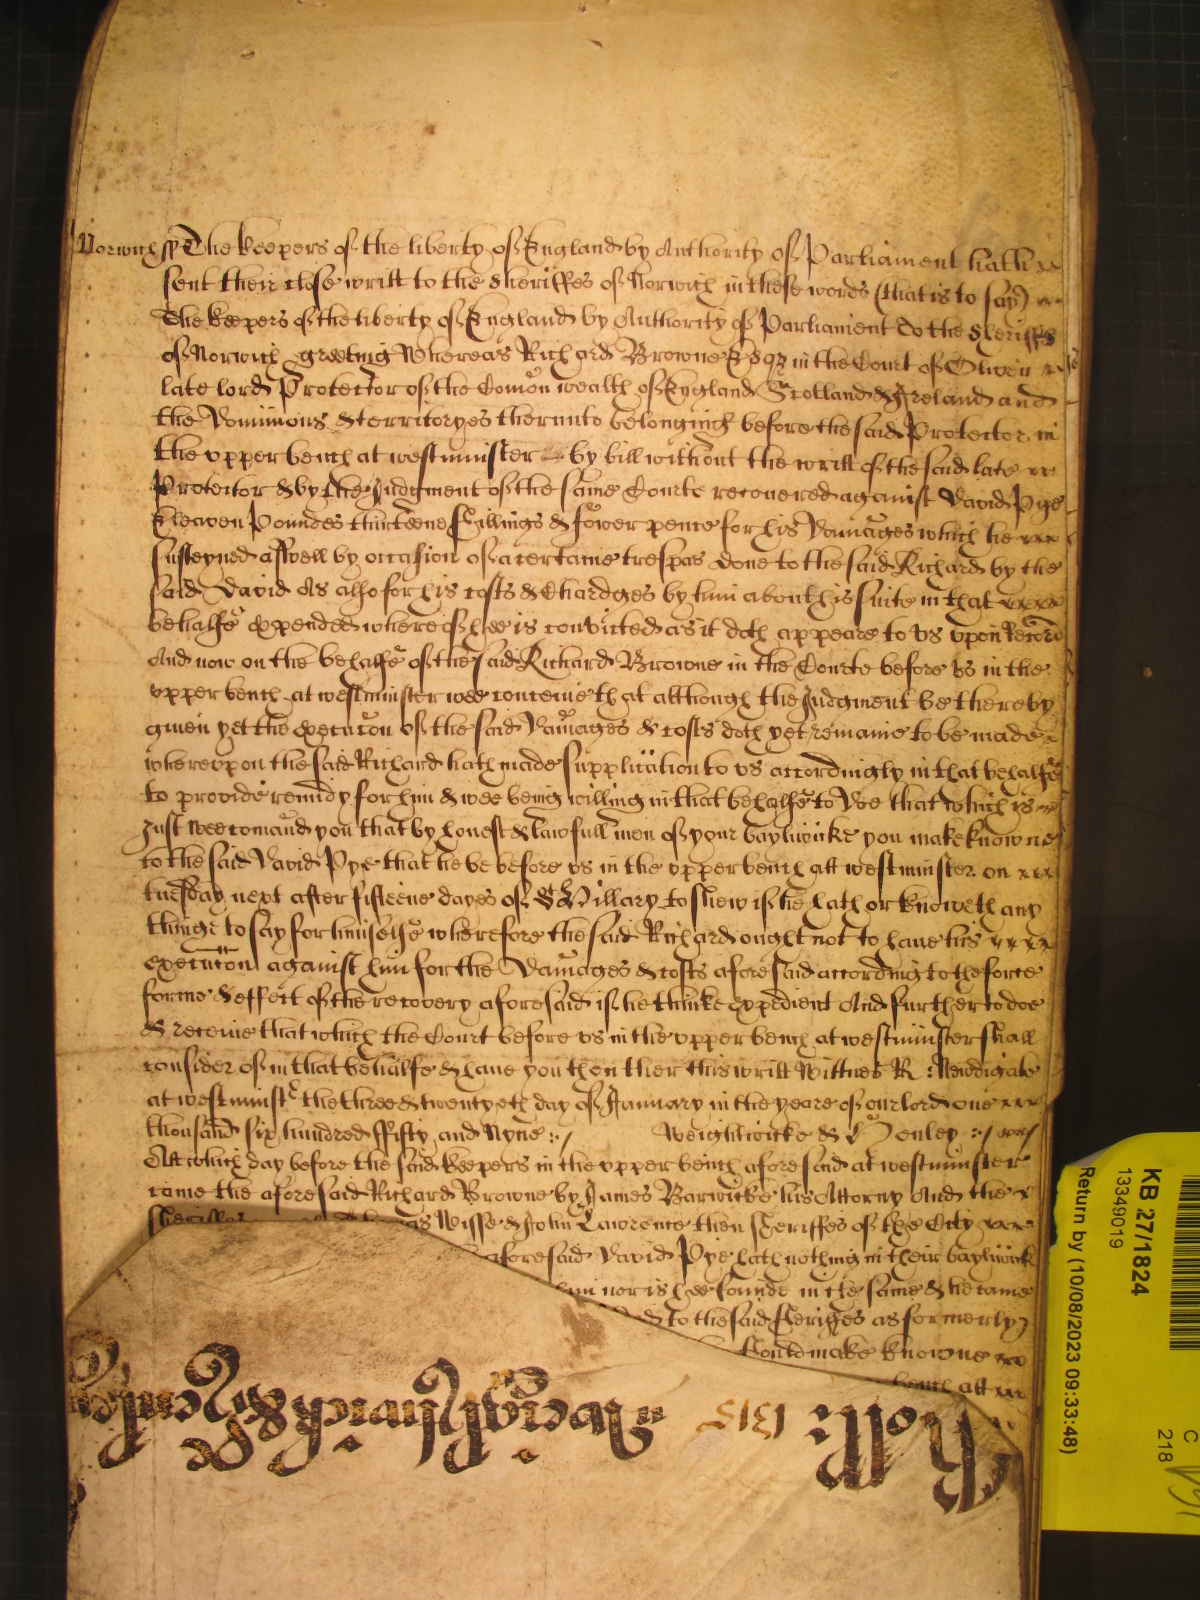 Norwich ss The keepers of the liberty of England by Authority of Parliament hath
sent their close writt to the Sheriffes of Norwich in these words (that is to say)
The keepers of the liberty of England by Authority of Parliament To the Sheriffes
of Norwich greeting Whereas Richard Browne Esqr in the Court of Oliver
late lord Protector of the Comon wealth of England Scotland & Ireland and
the Dominions & territoryes therunto belonging before the said Protector in
the upper bench at westminister by bill without the writt of the said late
Protector & by the Judgment of the same Courte recovered against David Pye
Eleaven Poundes thirteene shillings & fower pence for his Damages which he
susteyned aswell by occasion of a certaine trespas done to the said Richard by the
said David As also for his costs & Chardges by him about his suite in that
behalfe expended whereof hee is convicted as it doth appeare to us upon Record
And now on the behalfe of the said Richard Browne in the Courte before us in the
upper bench at westminister wee conceive that although the Judgment be thereby
given yet the execucon of the said Damages & costs doth yet remaine to be made
whereupon the said Richard hath made supplication to us accordingly in that behalfe
to provide remidy for him & wee being willing in that behalfe to doe that which is
Just wee comaund you that by honest & lawfull men of your bayliwicke you make knowne
to the said David Pye that he be before us in the upper bench att westminster on
tuesday next after fifteene dayes of St Hillary to shew if he hath or knoweth any
thinge to say for himselfe wherefore the said Richard ought not to have his
execucon against him for the Damages & costs aforesaid according to the force
forme & effect of the recovery aforesaid if he thinke expedient And further to doe
& receive that which the Court before us in the upper bench at westminister shall
consider of in that behalfe & have you then ther this writt Wittnes R : Newdigate
at westminstr the three & twentyeth day of January in the yeare of our lord one
thousand six hundred ffifty and Nyne Weightwicke & Henley
Att which day before the said keepers in the upper bench aforesaid at westminster
came the aforesaid Richard Browne by James Barwicke his Attorny And the
Sheriffes Wisse & John Lawrence then Sheriffes of the City
aforesaid David Pye hath nothing in their bayliwick
him nor is hee founde in the same & he came
to the said Sheriffes as formerly
should make knowne
bench att
Rotli 1315 Weightwick & Henley
KB 27/1824
13349019
Return by (10/08/2023 09:33:48)
C
218